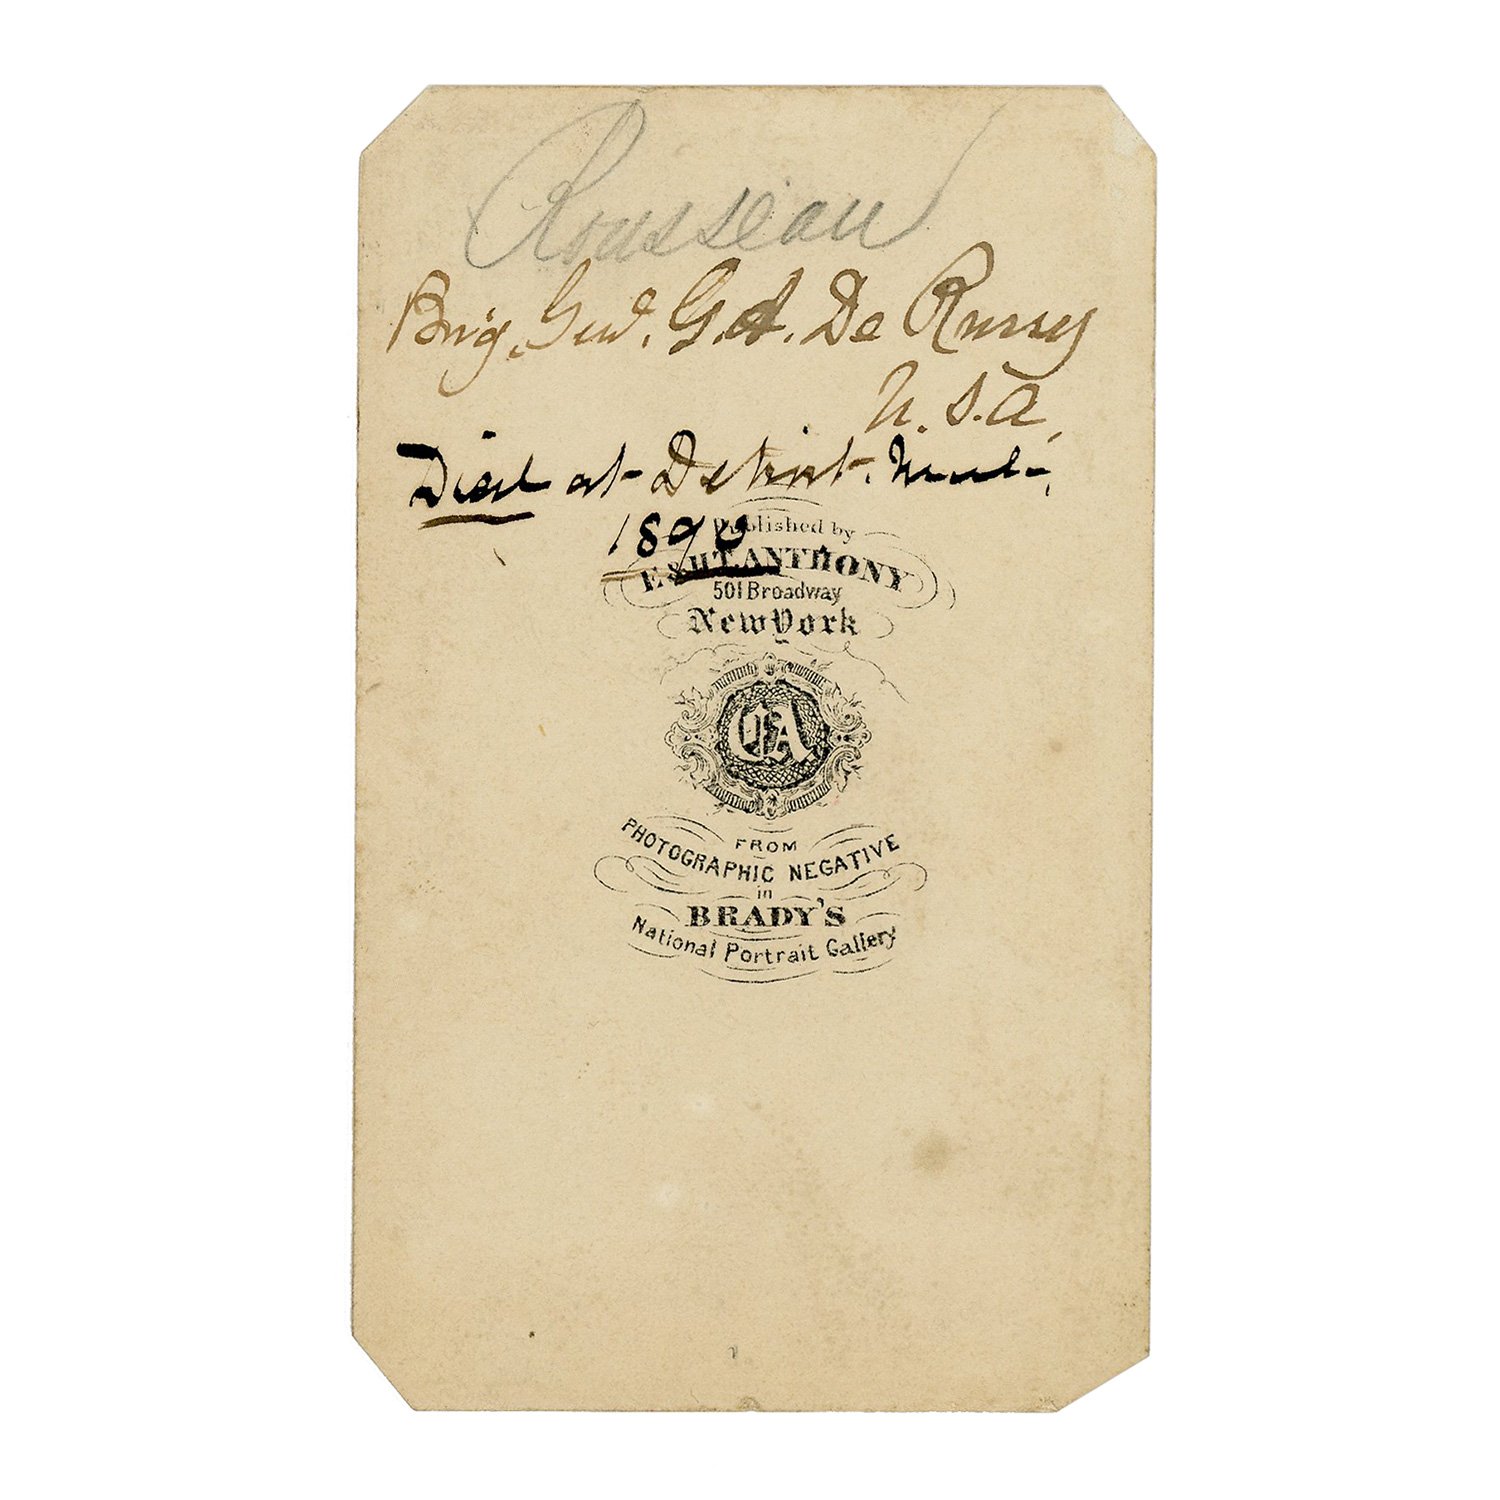 Rousseau
Brig. Genl. G. A. De Russy
U.S.A.
Died at Detroit. Mich.
1890
Published by
E & H T. ANTHONY
501 Broadway
New York
FROM
PHOTOGRAPHIC NEGATIVE
in
BRADY'S
National Portrait Gallery